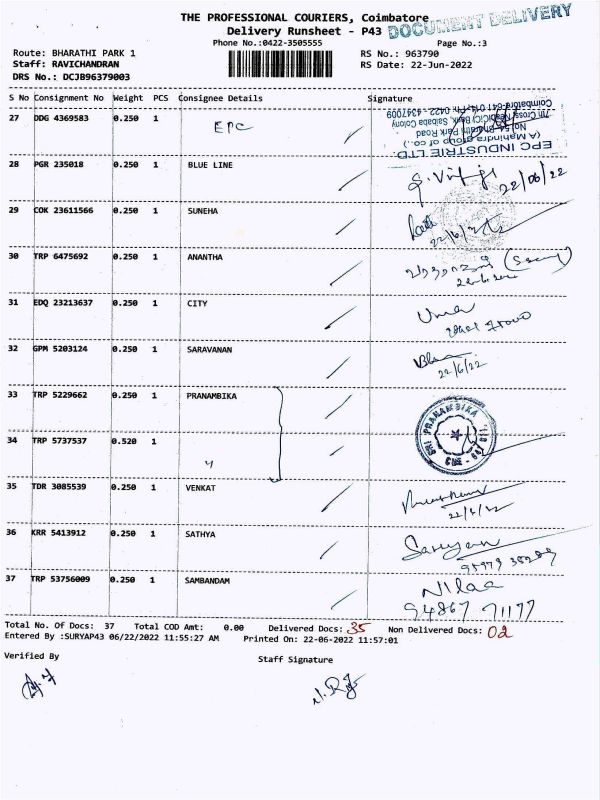 THE PROFESSIONAL COURIERS, Coimbatore
Delivery Runsheet - P43
DOCUMENT DELIVERY
Phone No.:0422-3505555
Page No.:3
Route: BHARATHI PARK 1
RS No.: 963790
Staff: RAVICHANDRAN
RS Date: 22-Jun-2022
DRS No.: DCJB96379003
S No Consignment No Weight PCS Consignee Details Signature
27 DDG 4369583 0.250 1 EPC
EPC INDUSTRIE LTD
(A Mahindra group of co..)
No. 54, Bharathi Park Road
7th Cross, Near ICICI Bank, Saibaba Colony
Coimbatore-641 011. Ph: 0422 - 4347009
28 PGR 235018 0.250 1 BLUE LINE
22/06/22
29 COK 23611566 0.250 1 SUNEHA
30 TRP 6475692 0.250 1 ANANTHA
31 EDQ 23213637 0.250 1 CITY
Uma
32 GPM 5203124 0.250 1 SARAVANAN
22/6/22
33 TRP 5229662 0.250 1 PRANAMBIKA
SRI PRANAMBIKA
34 TRP 5737537 0.520 1 "
35 TDR 3085539 0.250 1 VENKAT
36 KRR 5413912 0.250 1 SATHYA
37 TRP 53756009 0.250 1 SAMBANDAM
Nilaa
94867 71177
Total No. Of Docs: 37 Total COD Amt: 0.00 Delivered Docs: 35 Non Delivered Docs: 02
Entered By :SURYAP43 06/22/2022 11:55:27 AM Printed On: 22-06-2022 11:57:01
Verified By
Staff Signature